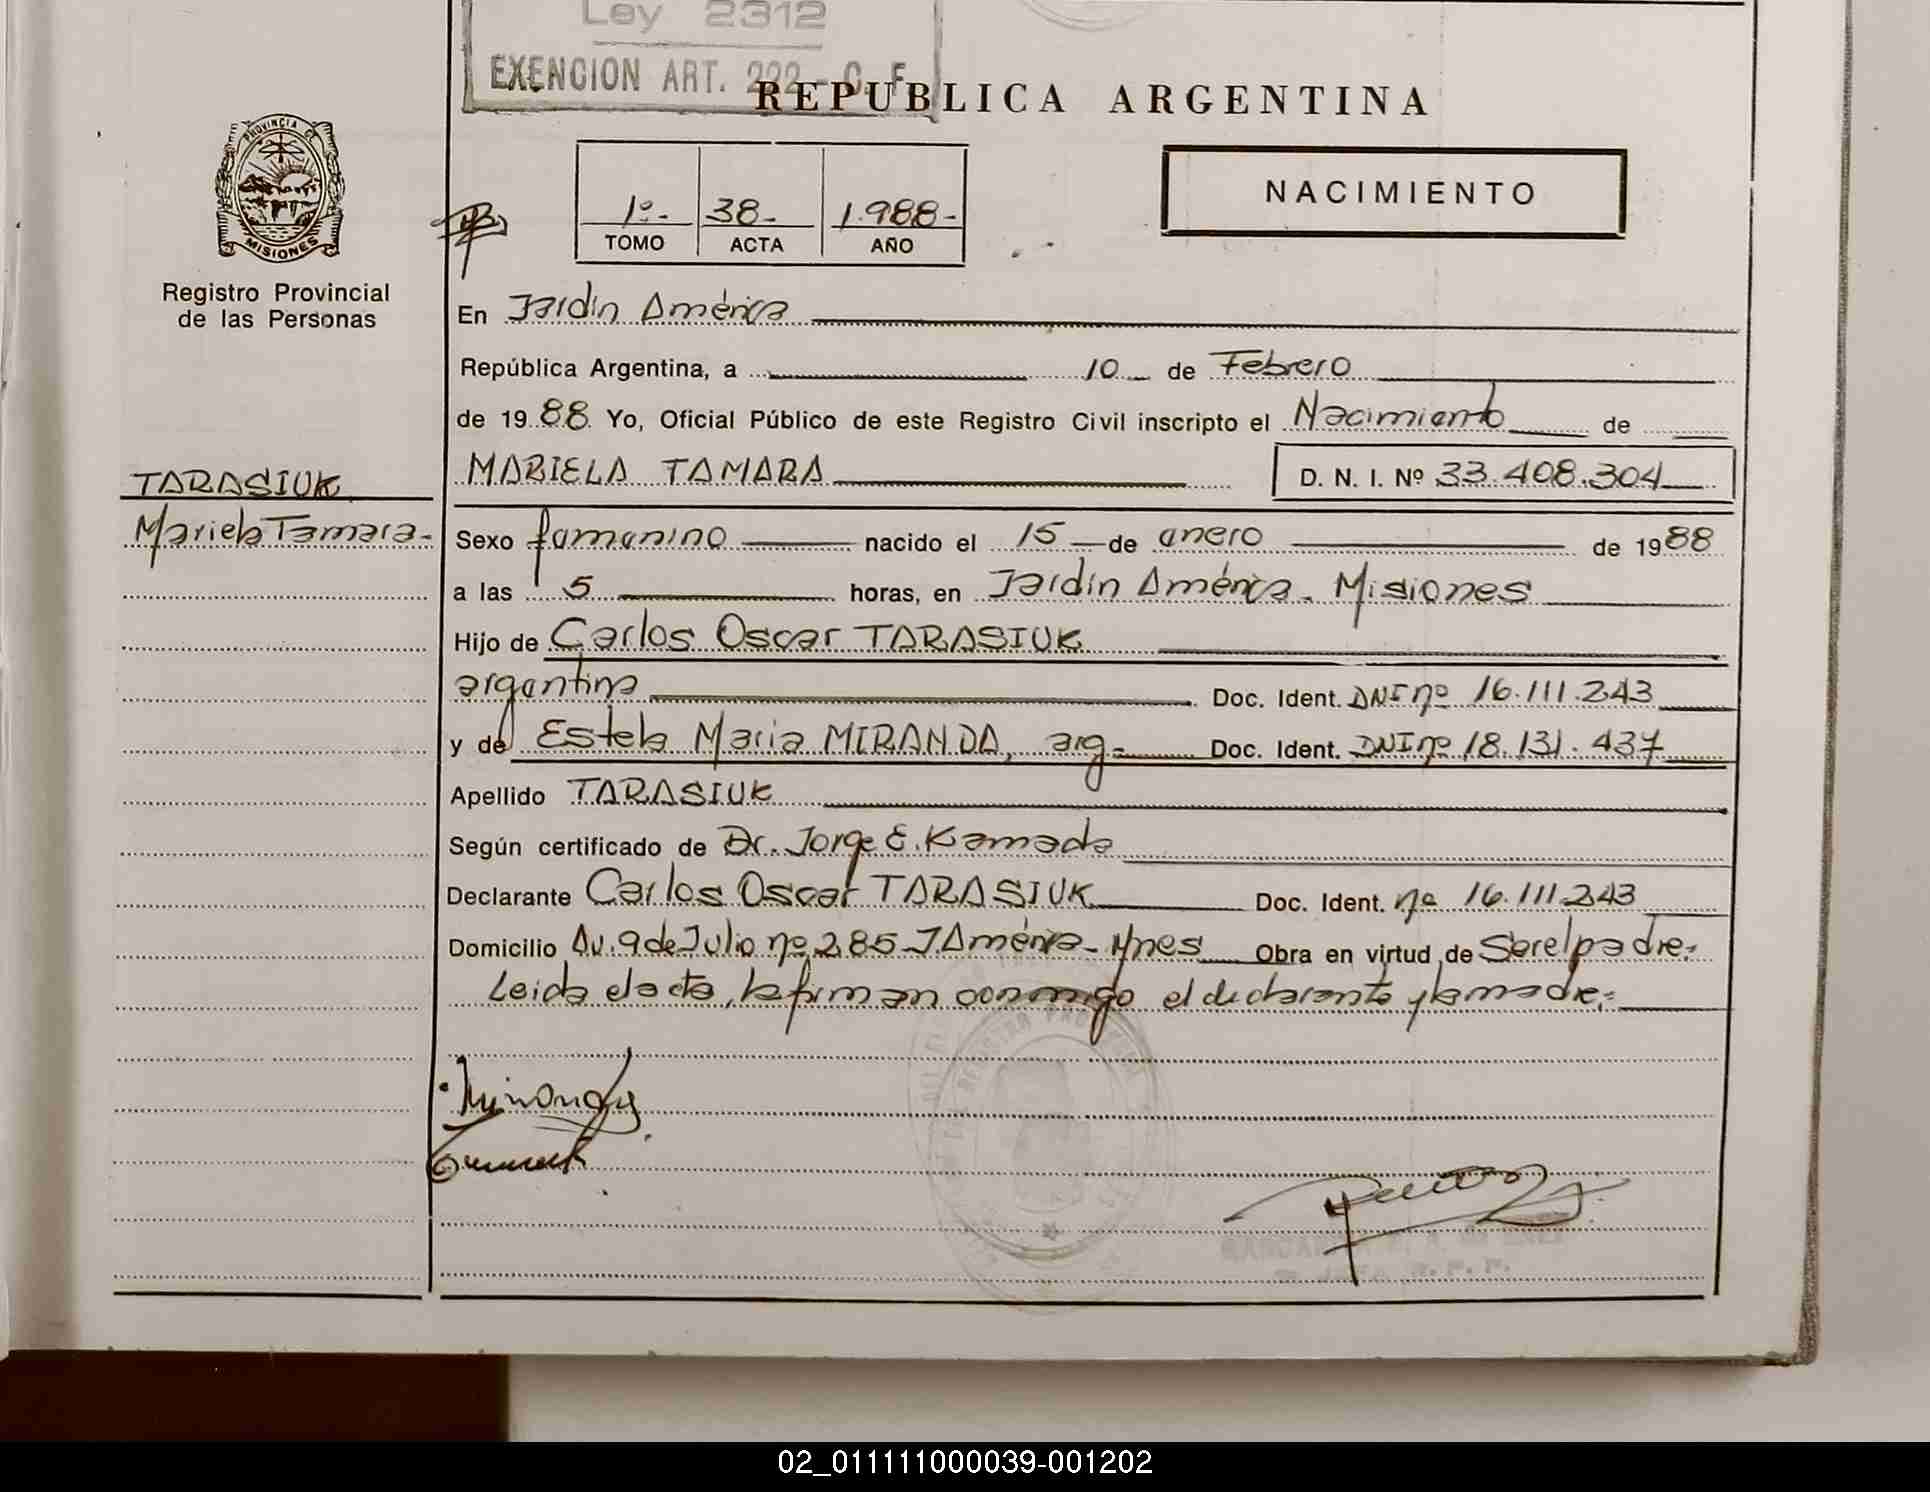 Ley 2312
EXENCION ART. 222 - C. F.
REPUBLICA ARGENTINA
PROVINCIA DE
MISIONES
Registro Provincial
de las Personas
1º- 38- 1.988-
TOMO ACTA AÑO
NACIMIENTO
En Jardín América
República Argentina, a 10 de Febrero
de 1988 Yo, Oficial Público de este Registro Civil inscripto el Nacimiento de
MARIELA TAMARA D. N. I. Nº 33.408.304
TARASIUK
Mariela Tamara-
Sexo femenino nacido el 15 de enero de 1988
a las 5 horas, en Jardín América. Misiones
Hijo de Carlos Oscar TARASIUK
argentina Doc. Ident. DNI nº 16.111.243
y de Estela Maria MIRANDA, arg- Doc. Ident. DNI nº 18.131.437
Apellido TARASIUK
Según certificado de Dr. Jorge E. Kamada
Declarante Carlos Oscar TARASIUK Doc. Ident. nº 16.111.243
Domicilio Av. 9 de Julio nº 285 J América - Mnes Obra en virtud de Ser el padre.-
Leida el acta, la firman conmigo el declarante y la madre.-
02_011111000039-001202